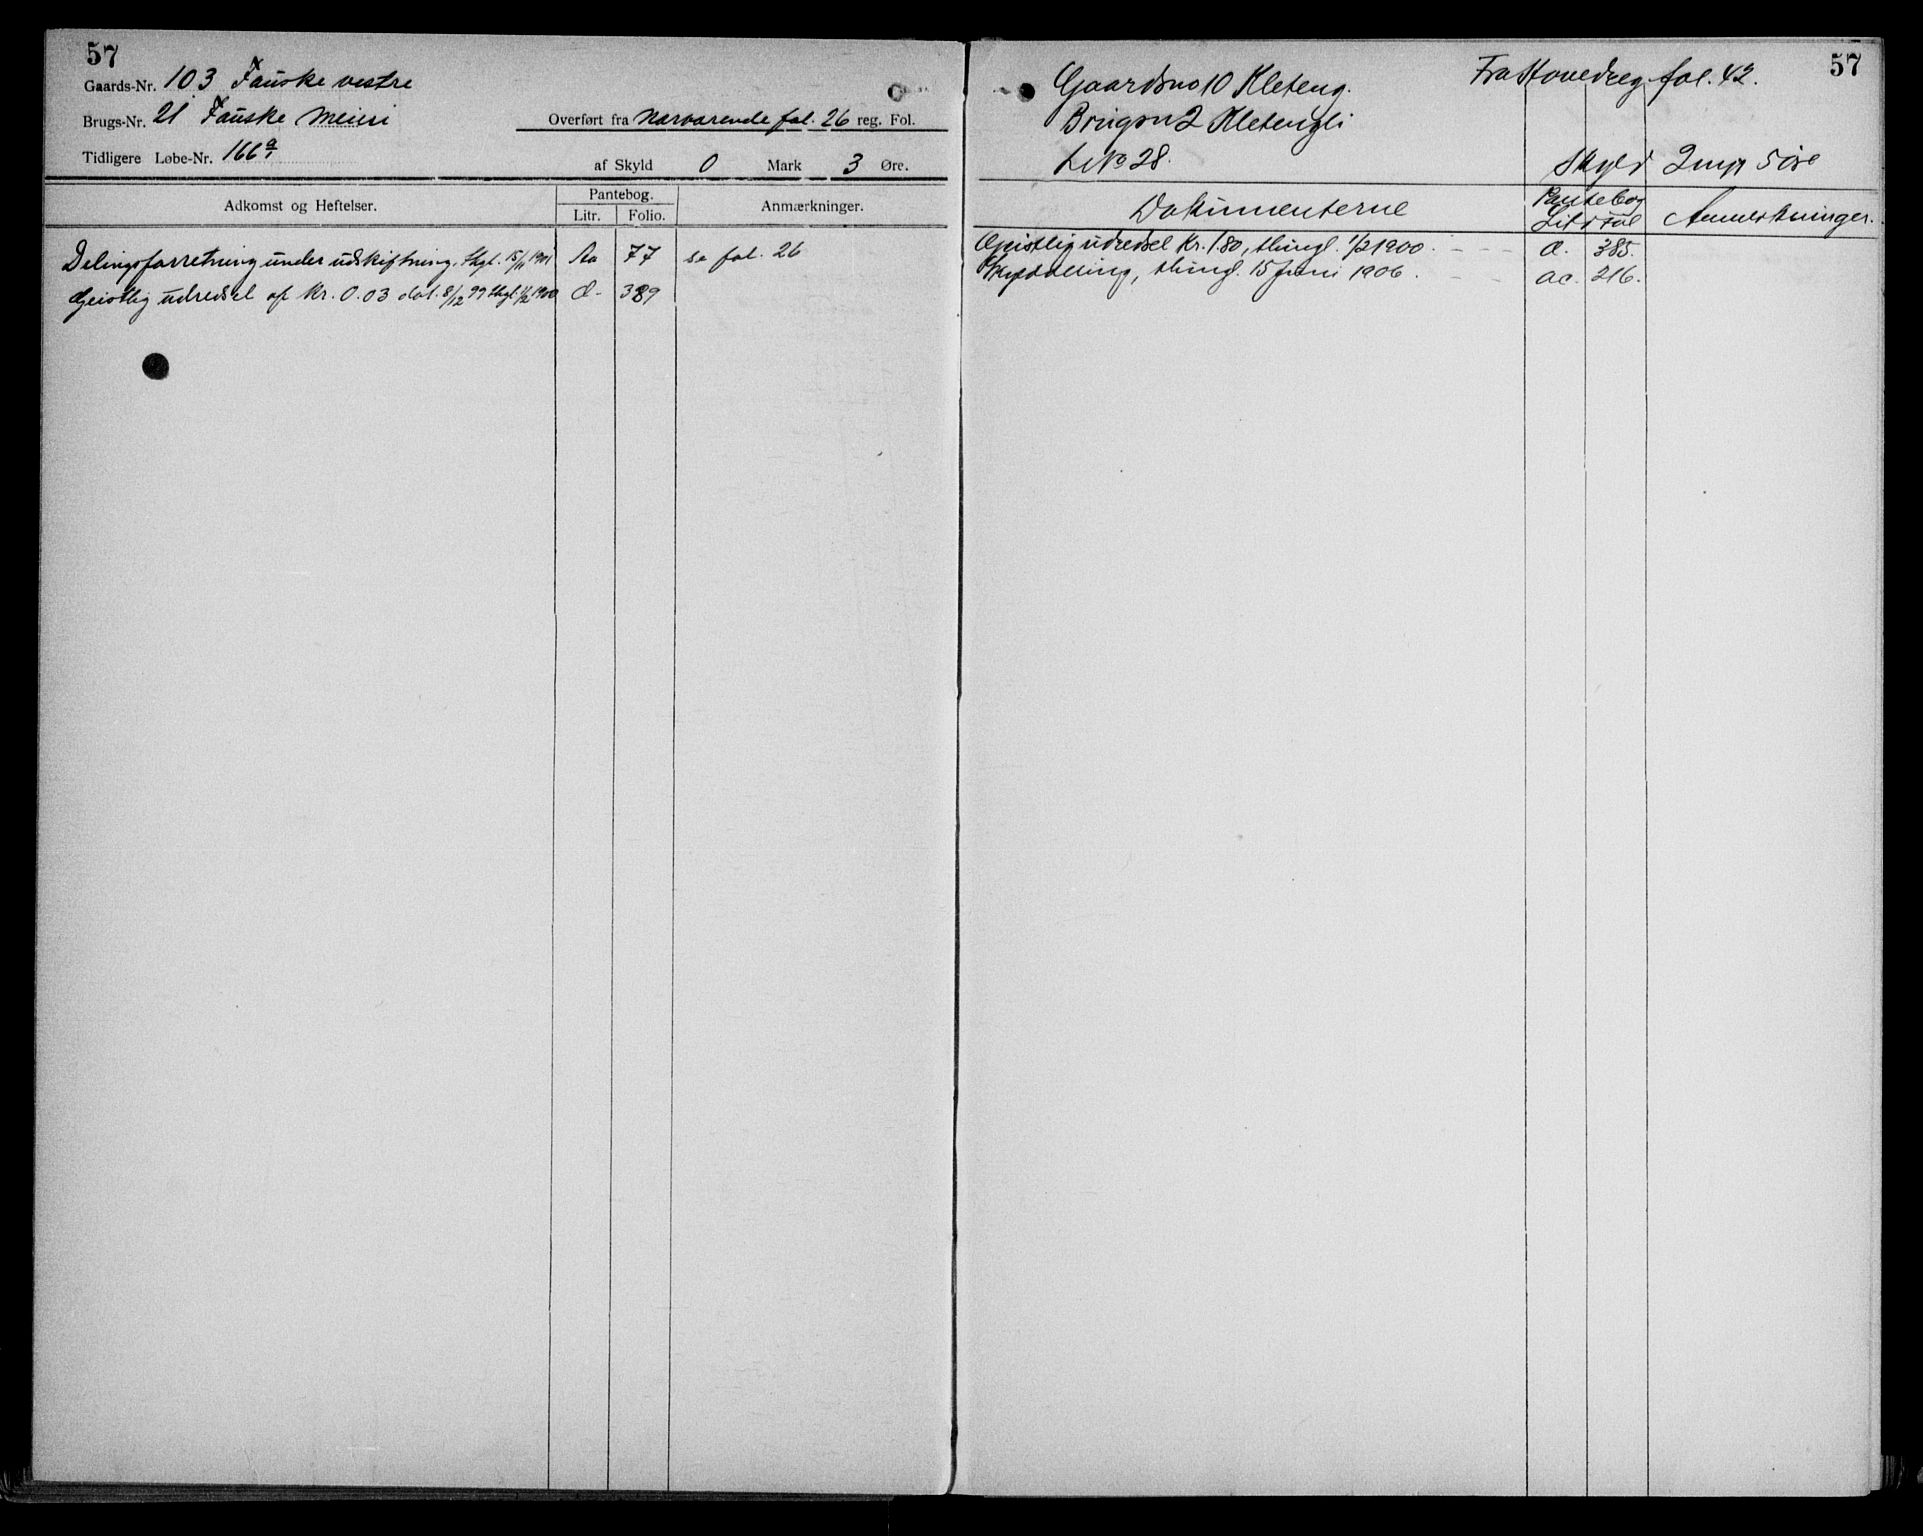 57
Gaards-Nr. 103 Fauske vestre
Brugs-Nr. 21 Fauske Meieri
Overført fra Nærværende fol. 26 reg. Fol.
Tidligere Løbe-Nr. 166 a
af Skyld 0 Mark 3 Øre.
Adkomst og Heftelser.
Pantebog.
Litr. Folio.
Anmærkninger.
Delingsforretning under udskiftning. thgl. 15/11 1901 Aa 77 se fol. 26
Geistlig udredsel af Kr. 0.03 dat. 8/12 99 thgl. 1/2 1900 Æ. 389
57
Fra Hovedreg fol. 42.
Gaardsno 10 Kleteng.
Brugsn 2 Kletengli
LNo 28.
Skyld 2 mrk 5 øre
Dokumenterne
Pantebog
Lit Fol
Anmerkninger.
Geistlig udredsel Kr. 1.80, thingl. 1/2 1900. Æ. 385.
Skylddeling, thingl. 15 Juni 1906. ac. 216.